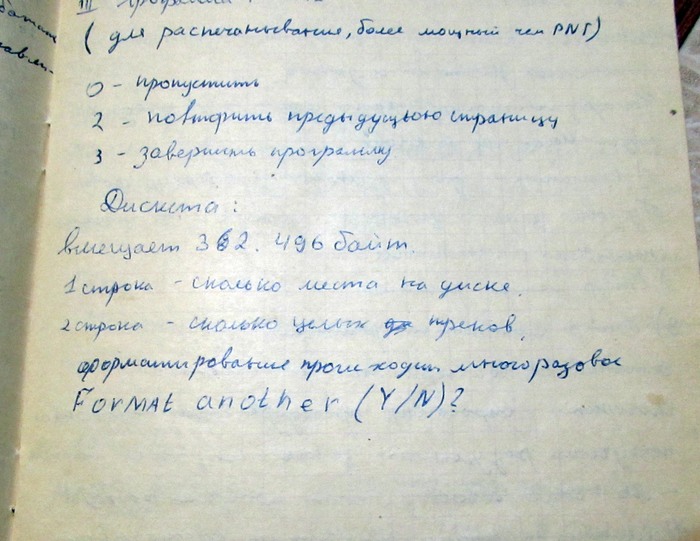 III программа
(для распечатывание, более мощный чем PNT)
0 - пропустить
2 - повторить предыдущюю страницу
3 - завершить программу
Дискета:
вмещает 362.496 байт.
1 строка - сколько места на диске.
2 строка - сколько целых треков
форматирование происходит многоразовое
Format another (Y/N)?